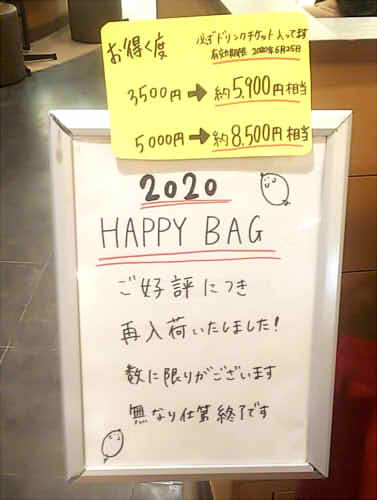 お得く度
必ずドリンクチケット入ってます
有効期限 2020年6月25日
3500円→約5,900円相当
5000円→約8,500円相当
2020
HAPPY BAG
ご好評につき
再入荷いたしました!
数に限りがございます
無なり仕第終了です